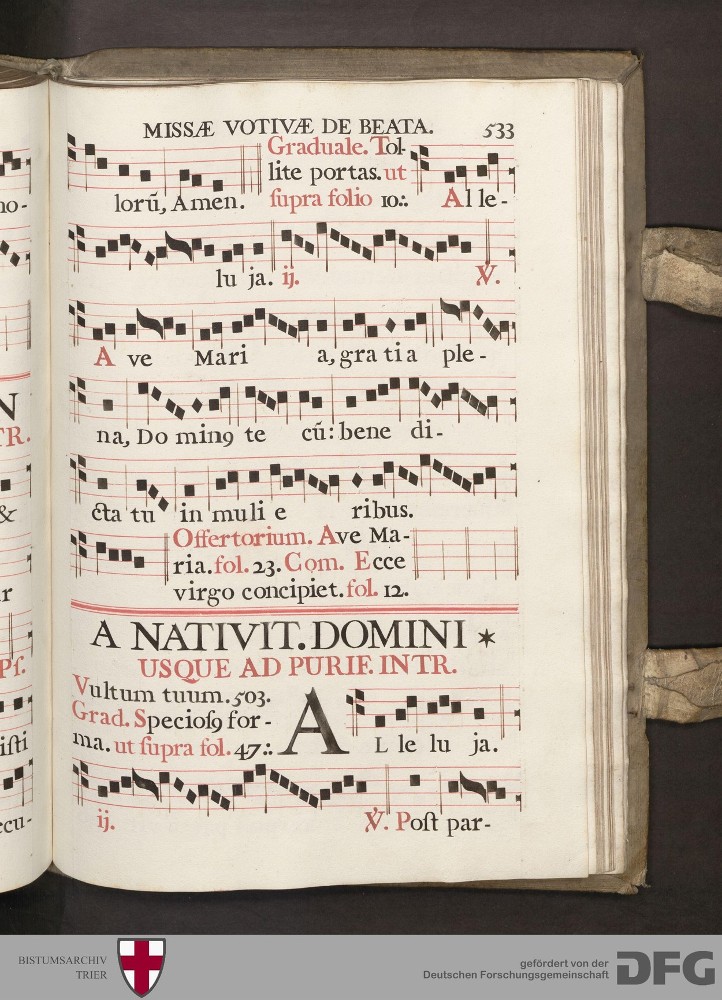 MISSÆ VOTIVÆ DE BEATA. 533
Graduale. Tol-
lite portas. ut
lorũ, Amen. ſupra folio 10:. Al le-
lu ja. ij. ℣.
A ve Mari a, gra tia ple-
na, Do minꝰ te cũ: bene di-
cta tu in muli e ribus.
Offertorium. Ave Ma-
ria. fol. 23. Com. Ecce
virgo concipiet. fol. 12.
A NATIVIT. DOMINI *
USQUE AD PURIF. INTR.
Vultum tuum. 503.
Grad. Specioſꝰ for-
ma. ut ſupra fol. 47:. AL le lu ja.
ij. ℣. Poſt par-
no-
N
TR.
&
r
Pſ.
iſti
ecu-
BISTUMSARCHIV
TRIER
gefördert von der
Deutschen Forschungsgemeinschaft
DFG